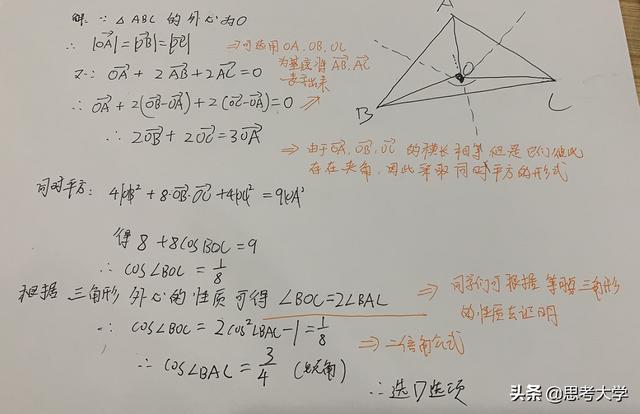 解：∵ △ABC 的外心为O
∴ |OA⃗|=|OB⃗|=|OC⃗|
⇒可选用OA、OB、OC
为基底将 AB⃗、AC⃗
表示出来
又∵ OA⃗ + 2AB⃗ + 2AC⃗ = 0
∴ OA⃗ + 2(OB⃗-OA⃗) + 2(OC⃗-OA⃗) = 0
∴ 2OB⃗ + 2OC⃗ = 3OA⃗
A
O
B
C
⇒ 由于OA⃗、OB⃗、OC⃗ 的模长相等 但是它们彼此
存在夹角，因此采取同时平方的形式
同时平方： 4|OB|² + 8·OB⃗·OC⃗ + 4|OC|² = 9|OA|²
得 8 + 8cosBOC = 9
∴ cos∠BOC = 1/8
根据 三角形 外心的性质可得 ∠BOC = 2∠BAC
⇒ 同学们可根据 等腰三角形
的性质去证明
∴ cos∠BOC = 2cos²∠BAC - 1 = 1/8
⇒ 二倍角公式
∴ cos∠BAC = 3/4 (锐角)
∴ 选D选项
头条 @思考大学